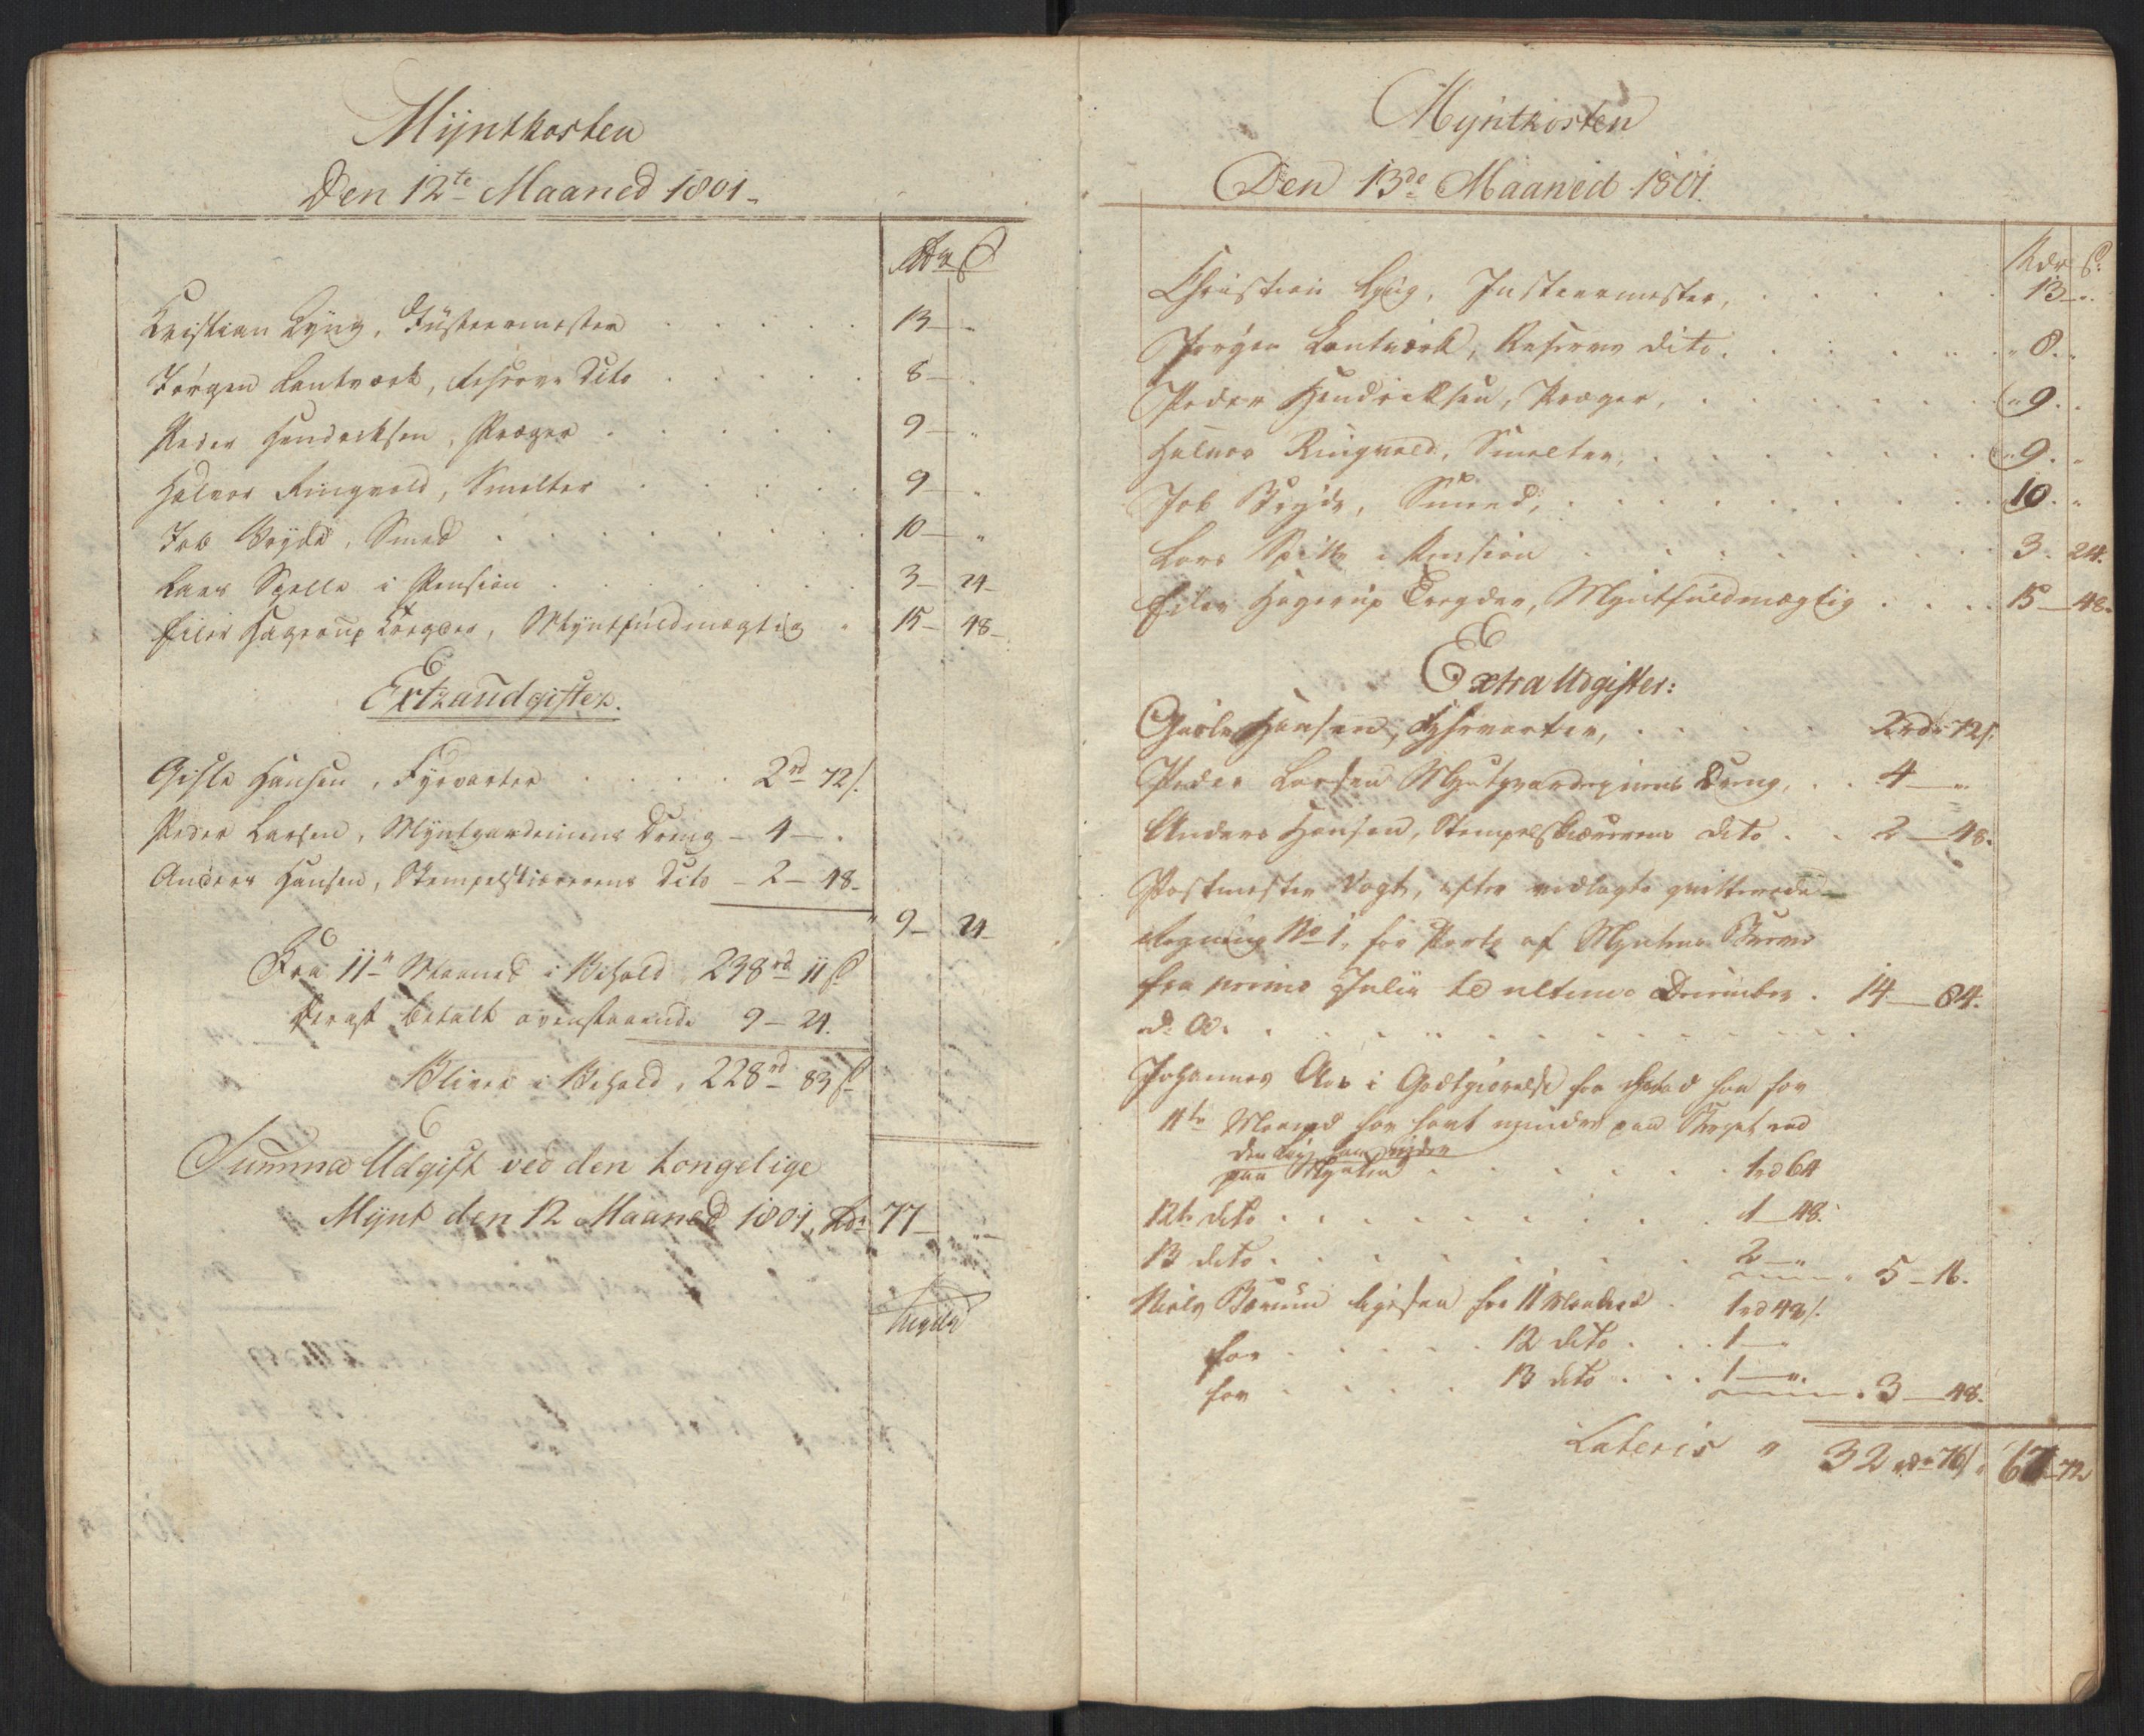 Mÿntkosten
Den 12te Maaned 1801.
Rdr ß
Cristian Lÿng, Jüsteermester . . . . . 13 — "
Jørgen Lentværk, Reserve Dito . . . . . 8 — "
Peder Hendricksen, Præger . . . . . 9 — "
Halvor Ringvold, Smelter . . . . . 9 — "
Job Brÿde, Smed . . . . . . . 10 — "
Lars Spelle i Pension . . . . . . 3 — 24
Eiler Hagerup Krogder, Mÿntfuldmægtig " 15 — 48
Extraudgifter.
Gisle Hansen, Fÿrvarter . . . . 2rd 72ß.
Peder Larsen, Mÿntguardeinens Dreng — 4 — "
Anders Hansen, Stempelskiærerens Dito — 2 — 48
" 9 — 24
Fra 11te Maaned i Behold 238rd 11ß
Deraf betalt ovenstaaende 9 — 24.
Bliver i Behold, 228rd 83ß
Summa Udgift ved den kongelige
Mÿnt den 12 Maaned 1801, Rdr 77 — "
Myntkosten
Den 13de Maaned 1801.
Rdr ß:
Christian Lÿng, Justeermester, . . . . . 13 — "
Jørgen Lentværk, Reserve dito . . . . . " 8. "
Peder Hendricksen, Præger, . . . . . . " 9. "
Halvor Ringvold, Smelter, . . . . . . " 9. "
Job Bryde, Smeed, . . . . . . . . 10. "
Lars Spelle i Pension . . . . . . . 3. 24.
Eiler Hagerup Krogder, Myntfuldmægtig . . . . 15 — 48.
Extra Udgifter:
Gisle Hansen, Fyhrvarter, . . . . . 2rdr 72ß.
Peder Larsen Myntgvardeinens Dreng, . . 4 — "
Anders Hansen, Stempelskiærerens dito . . 2 — 48.
Postmester Vogt, efter vedlagte qvitterede
Regning No 1, for Porto af Myntens Breve
fra primo Julii til ultimo December . 14 — 84.
d: A: . . . . . . . . . . . .
Johannes Aas i Godtgiørelse for hvad han for
11te Maaned har havt mindre paa Verket end
den Tiid han vider
paa Mynten . . . . . . 1rd 64
12te dito . . . . . . . . . 1 — 48.
13 dito . . . . . . . . . 2 — " " 5 — 16.
Niels Bernim ligesaa for 11 Maaned . 1rd 48ß.
for . . . . . 12 dito . . . 1 —
for . . . . 13 dito . . . 1 — " . 3 — 48.
Lateris " 32rdr 76ß " 67 — 72